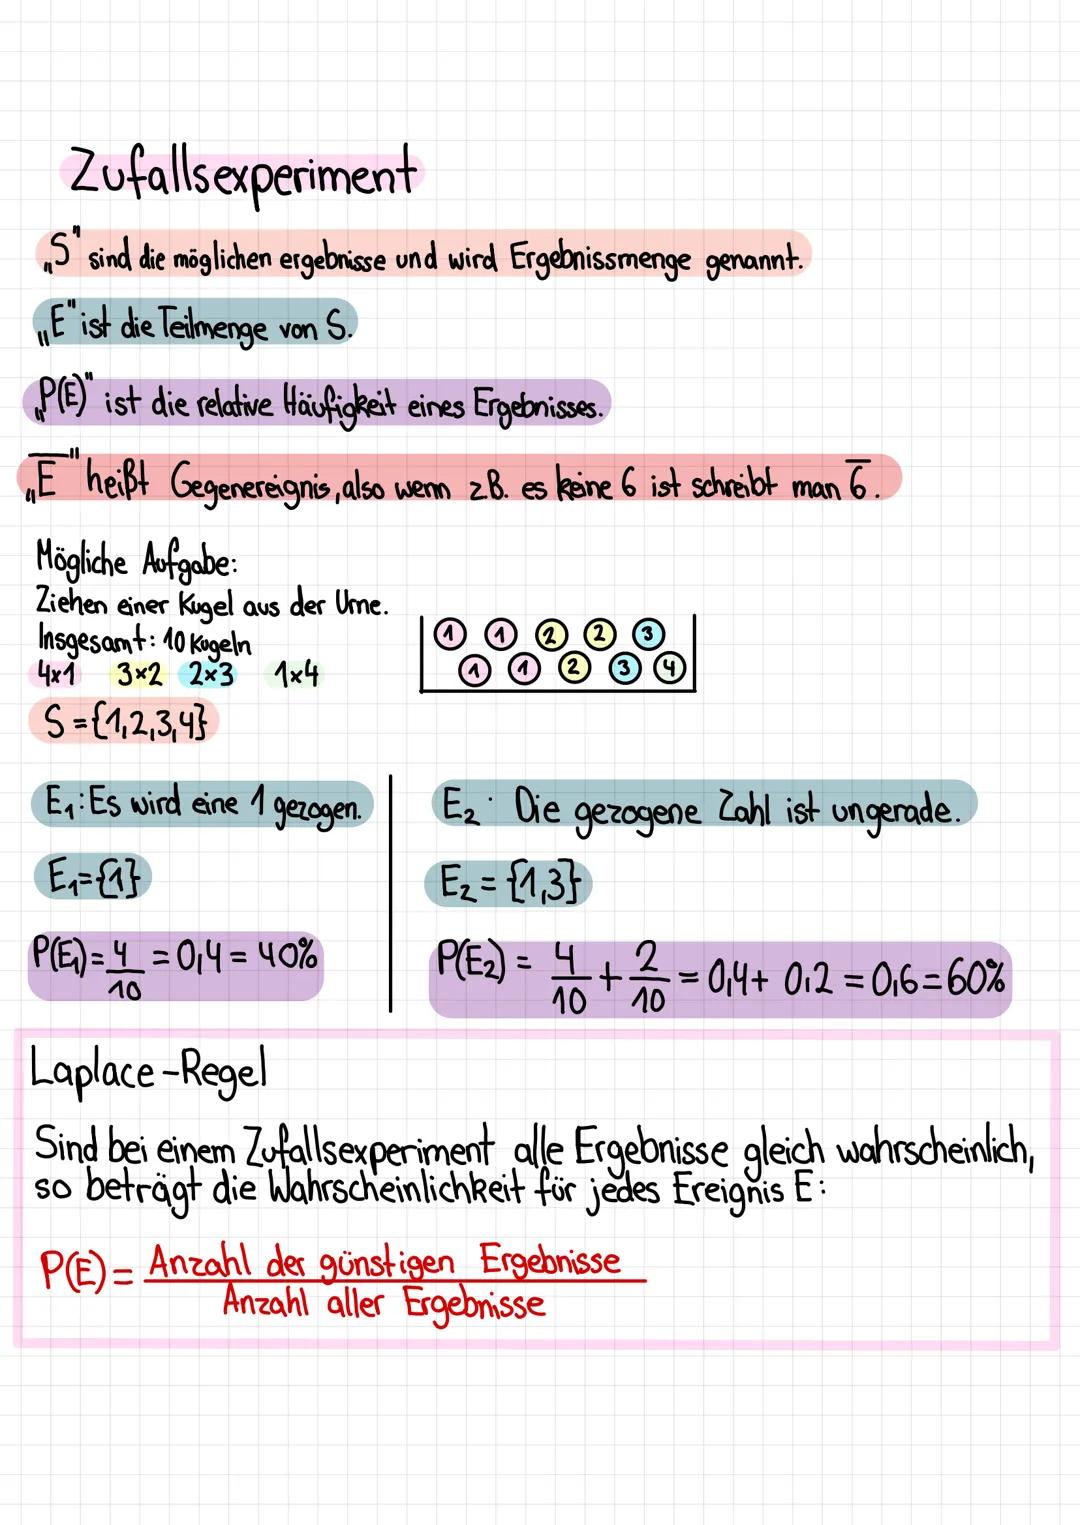 Zufallsexperiment
„S" sind die möglichen ergebnisse und wird Ergebnissmenge genannt.
„E" ist die Teilmenge von S.
„P(E)" ist die relative Häufigkeit eines Ergebnisses.
„E̅" heißt Gegenereignis, also wenn zB. es keine 6 ist schreibt man 6̅.
Mögliche Aufgabe:
Ziehen einer Kugel aus der Urne.
Insgesamt: 10 Kugeln
4x1 3x2 2x3 1x4
1 1 2 2 3
1 1 2 3 4
S={1,2,3,4}
E₁: Es wird eine 1 gezogen.
E₁={1}
P(E₁)= 4/10 = 0,4 = 40%
E₂: Die gezogene Zahl ist ungerade.
E₂ = {1,3}
P(E₂) = 4/10 + 2/10 = 0,4 + 0,2 = 0,6 = 60%
Laplace-Regel
Sind bei einem Zufallsexperiment alle Ergebnisse gleich wahrscheinlich,
so beträgt die Wahrscheinlichkeit für jedes Ereignis E:
P(E) = Anzahl der günstigen Ergebnisse
Anzahl aller Ergebnisse